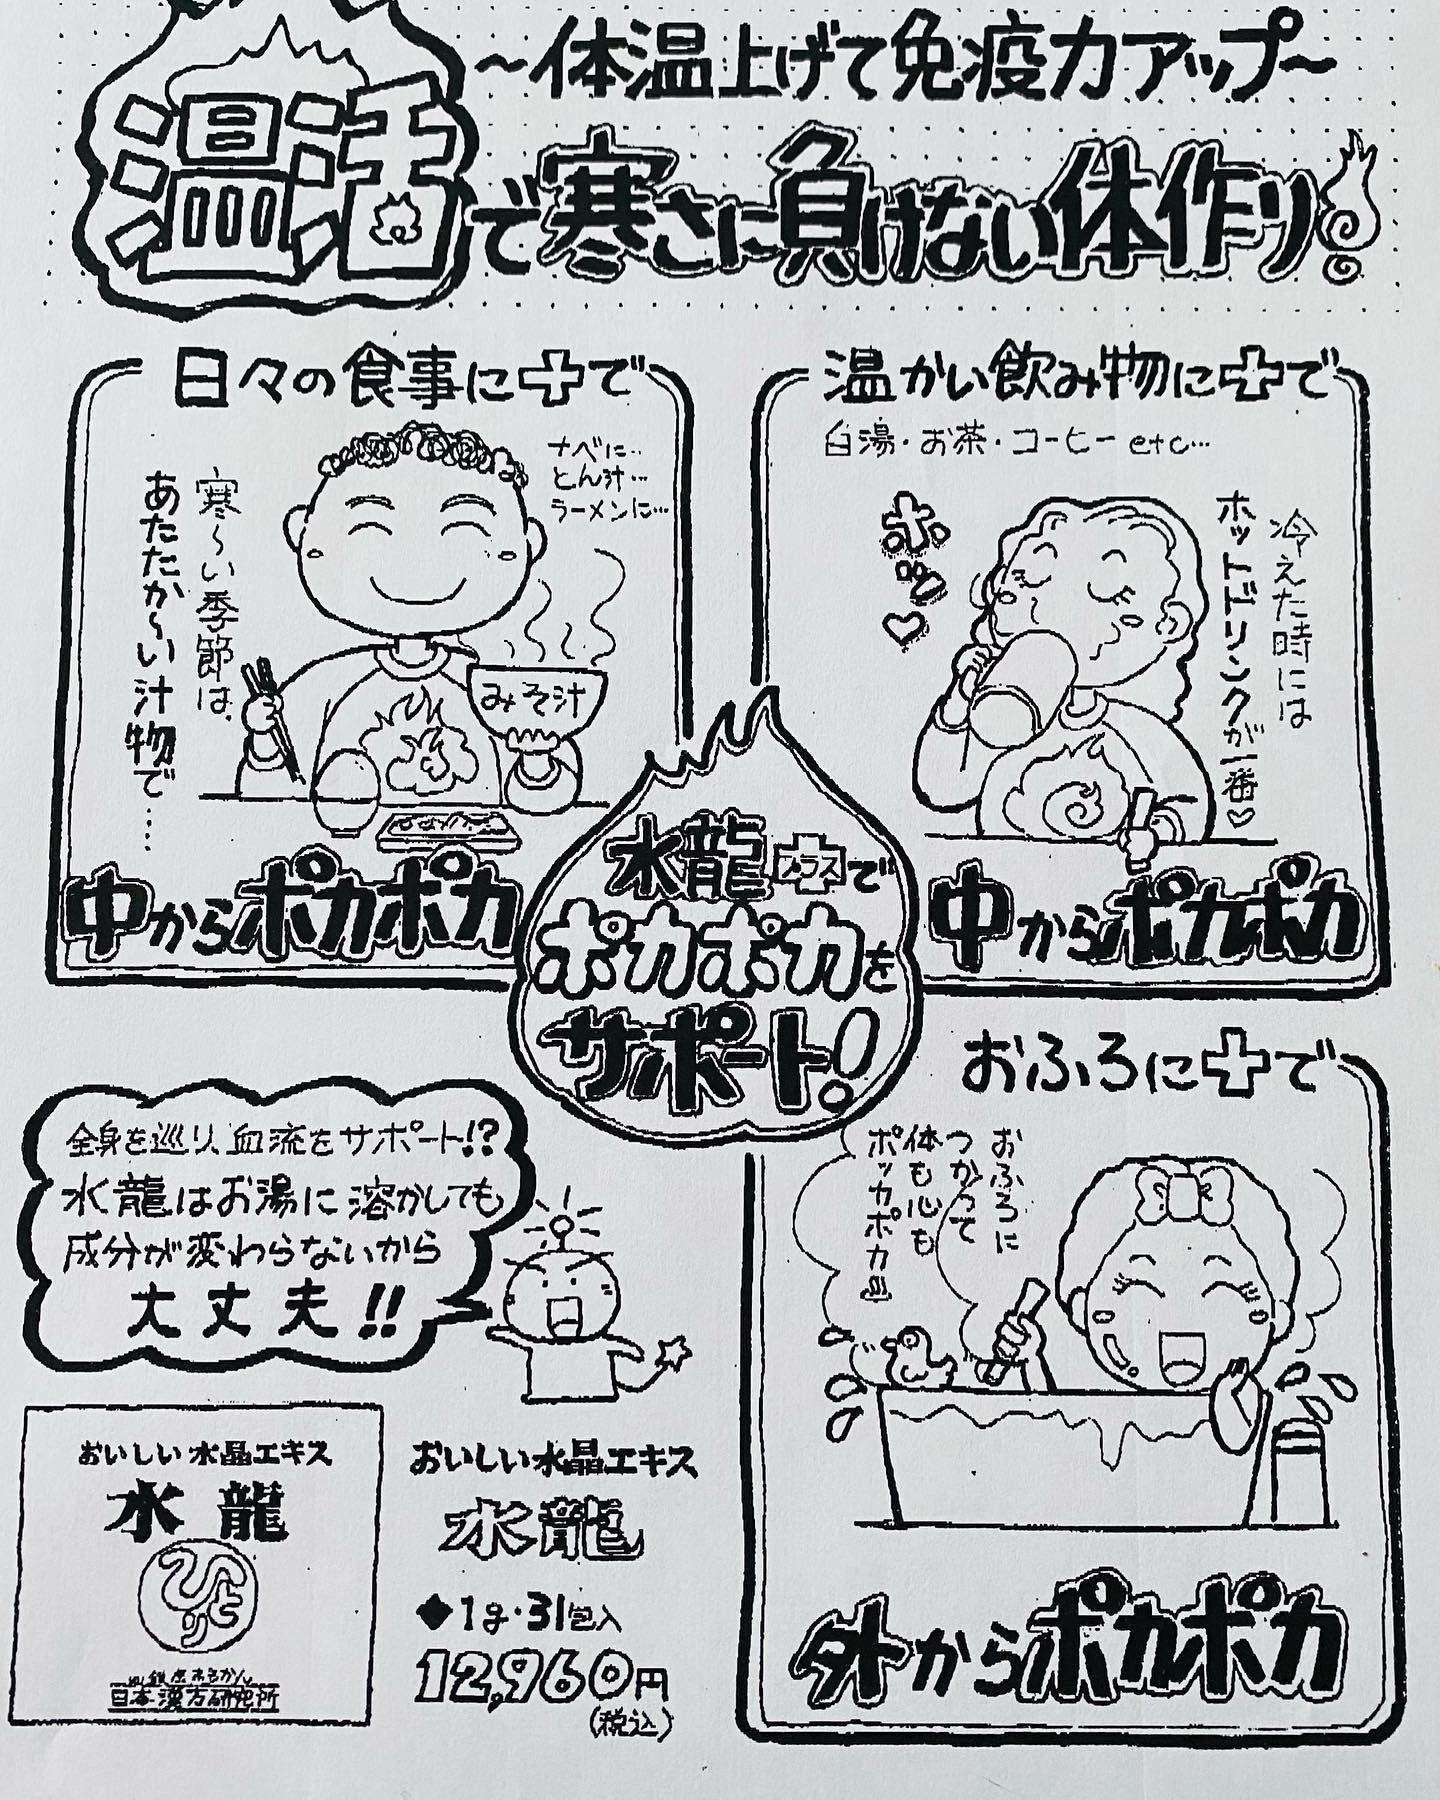 ～体温上げて免疫力アップ～
温活で寒さに負けない体作り!
日々の食事に＋で
ナベに…
とん汁…
ラーメンに…
寒～い季節は、
あたたか～い汁物で……
みそ汁
中からポカポカ
温かい飲み物に＋で
白湯・お茶・コーヒーetc…
冷えた時には
ホットドリンクが一番♡
ホッ♡
中からポカポカ
水龍プラスで
ポカポカを
サポート!
おふろに＋で
おふろに
つかって
体も心も
ポッカポカ♨
外からポカポカ
全身を巡り、血流をサポート!?
水龍はお湯に溶かしても
成分が変わらないから
大丈夫!!
おいしい水晶エキス
水龍
ひとり
日本漢方研究所
おいしい水晶エキス
水龍
◆1g・31包入
12,960円
(税込)